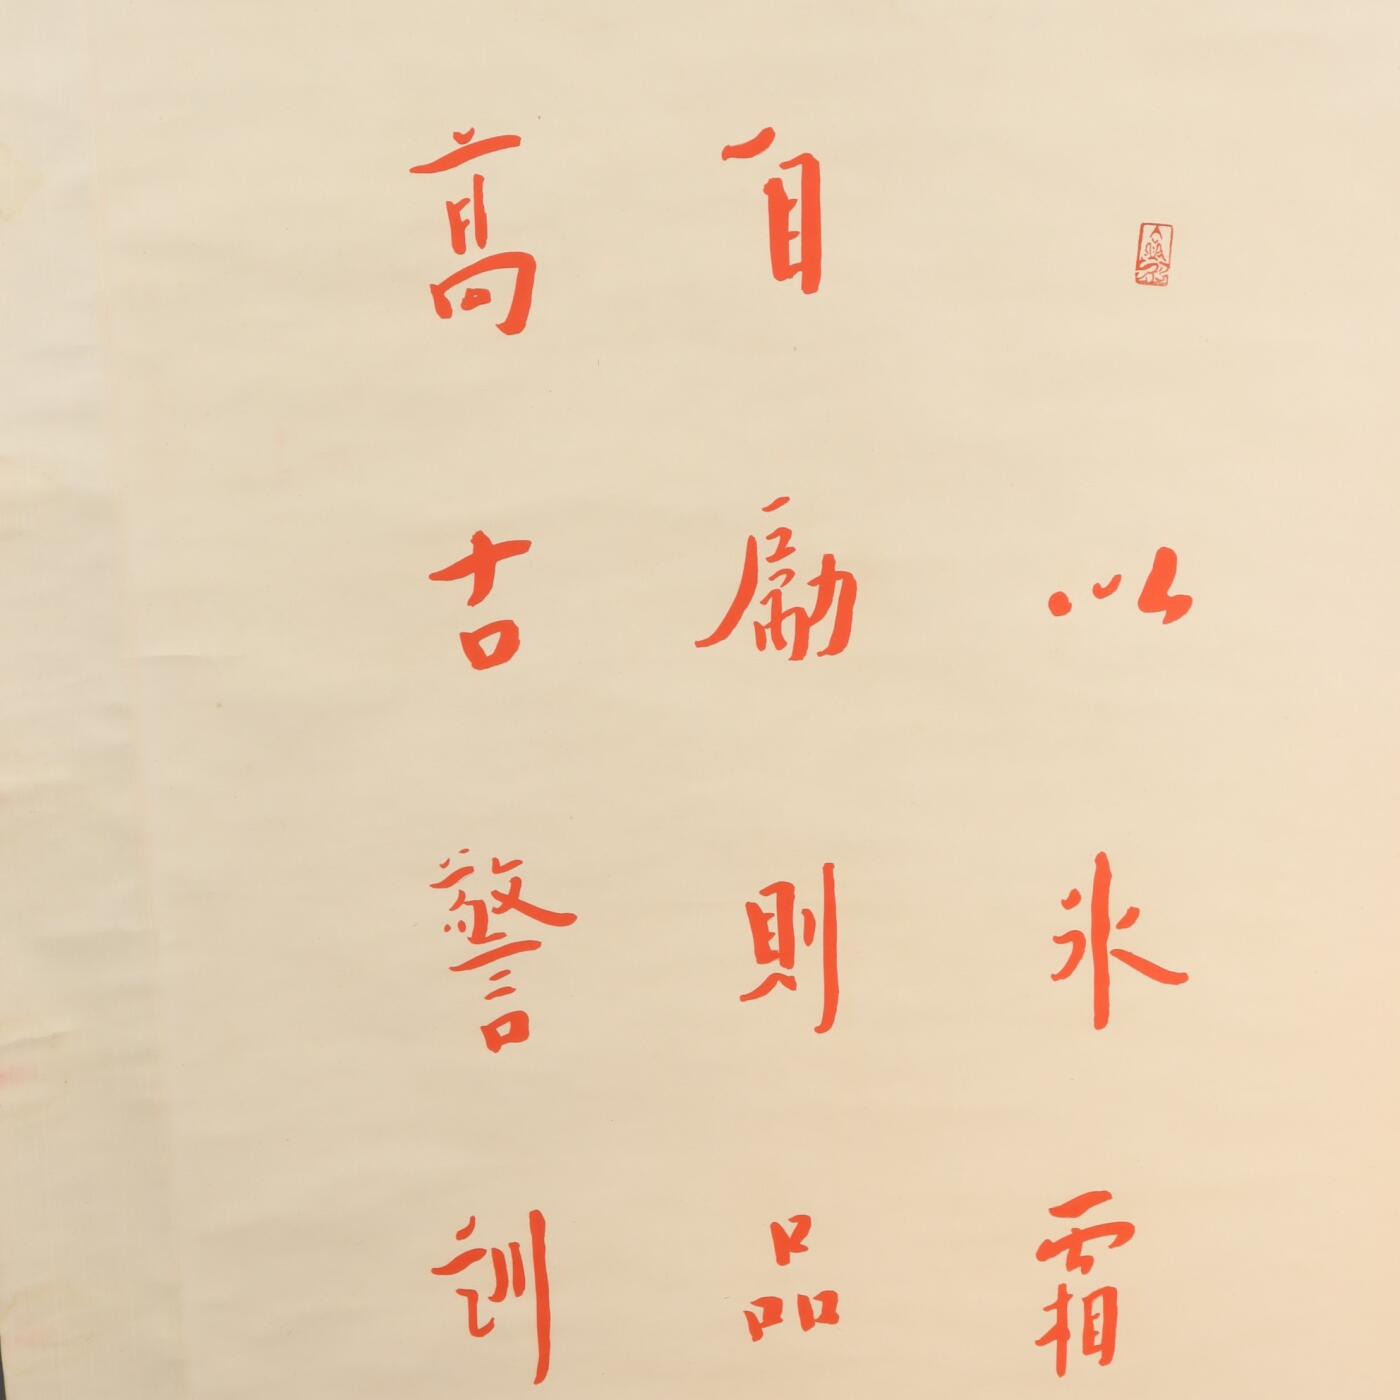 以氷霜
自勵則品
高古警訓